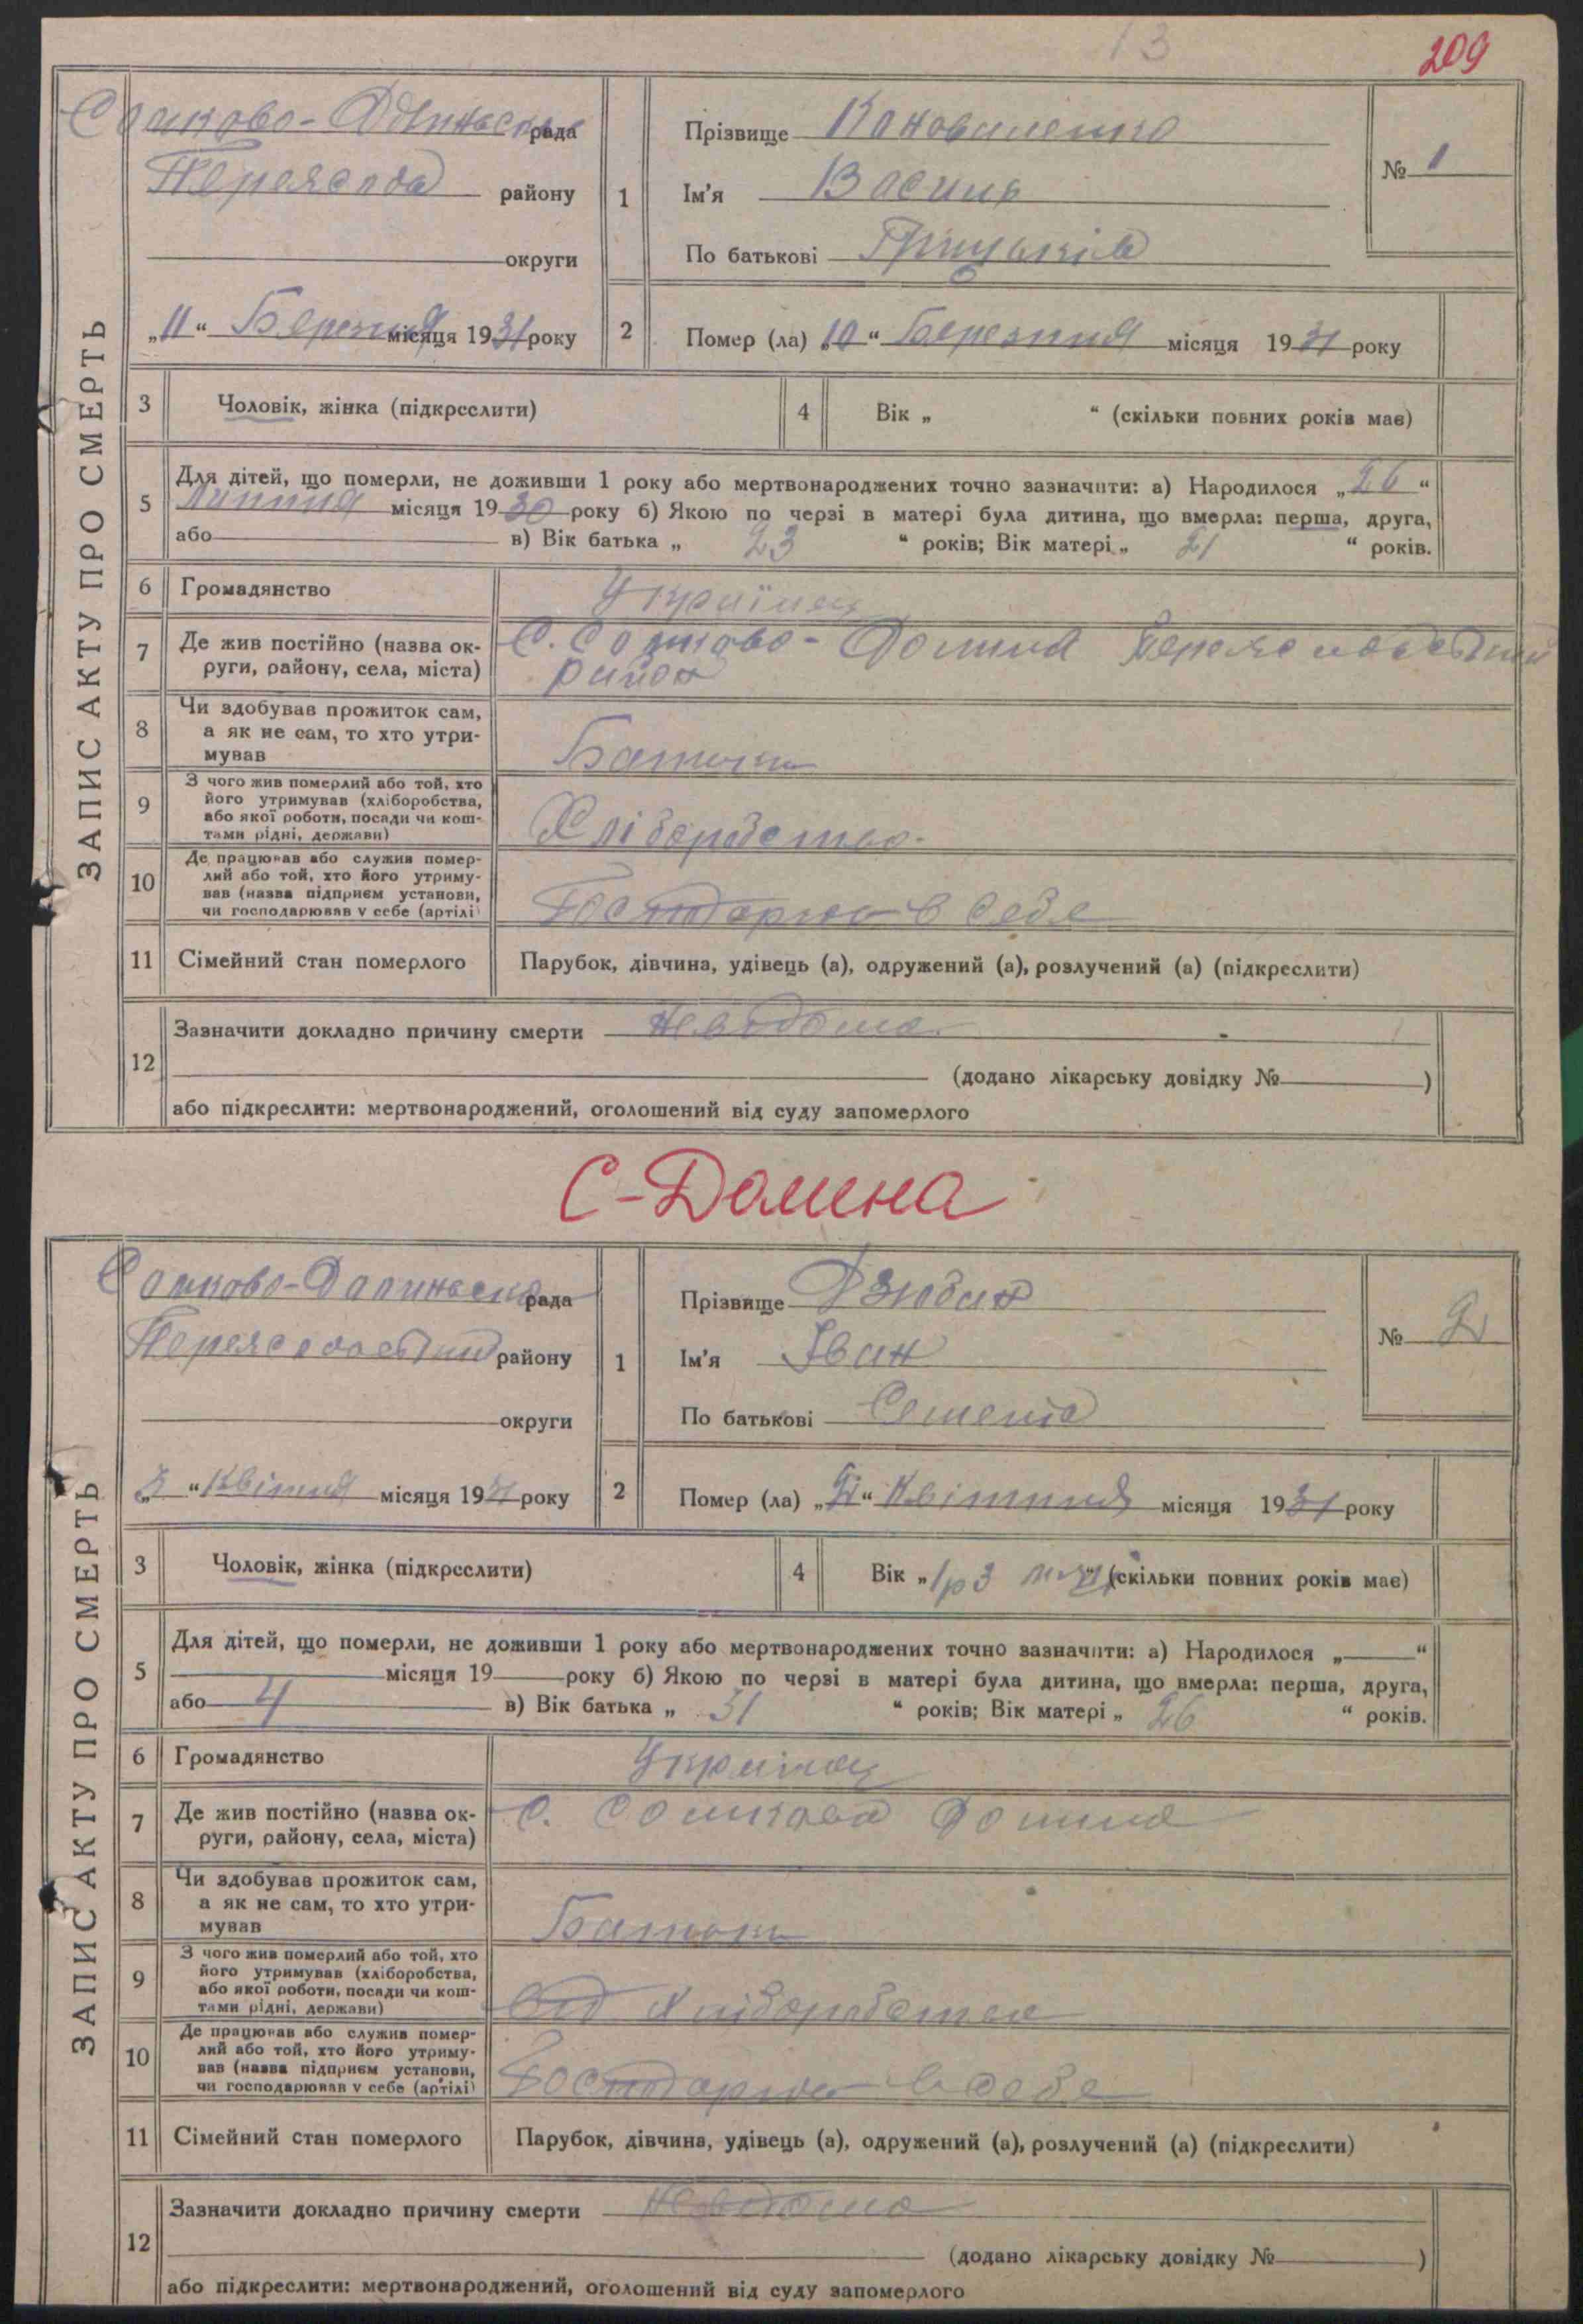 13
209
ЗАПИС АКТУ ПРО СМЕРТЬ
Сомково-Долинська рада
Переяслов району
округи
„11“ Березня місяця 1931 року
1
Прізвище Коноваленко
Ім'я Василь
По батькові Грицьків
№ 1
2 Помер (ла) „10“ Березния місяця 1931 року
3 Чоловік, жінка (підкреслити)
4 Вік „ “ (скільки повних років має)
5 Для дітей, що померли, не доживши 1 року або мертвонароджених точно зазначити: а) Народилося „26“
Липния місяця 1930 року б) Якою по черзі в матері була дитина, що вмерла: перша, друга,
або в) Вік батька „ 23 “ років; Вік матері „ 21 “ років.
6 Громадянство Українец
7 Де жив постійно (назва ок-
руги, району, села, міста)
С. Сомково-Долина
район
8 Чи здобував прожиток сам,
а як не сам, то хто утри-
мував
Батьки
9 З чого жив померлий або той, хто
його утримував (хліборобства,
або якої роботи, посади чи кош-
тами рідні, держави)
Хліборобство
10 Де працював або служив помер-
лий або той, хто його утриму-
вав (назва підприєм установи,
чи господарював у себе (артілі)
Господарює в себе
11 Сімейний стан померлого Парубок, дівчина, удівець (а), одружений (а), розлучений (а) (підкреслити)
12 Зазначити докладно причину смерти Невідома
(додано лікарську довідку № )
або підкреслити: мертвонароджений, оголошений від суду запомерлого
С-Долина
ЗАПИС АКТУ ПРО СМЕРТЬ
Сомково-Долинська рада
району
округи
„3“ Квітня місяця 1931 року
1
Прізвище Дзюбан
Ім'я Іван
По батькові Семенів
№ 2
2 Помер (ла) „2“ Квітния місяця 1931 року
3 Чоловік, жінка (підкреслити)
4 Вік „1р 3 “ (скільки повних років має)
5 Для дітей, що померли, не доживши 1 року або мертвонароджених точно зазначити: а) Народилося „ “
місяця 19 року б) Якою по черзі в матері була дитина, що вмерла: перша, друга,
або 4 в) Вік батька „ 31 “ років; Вік матері „ 26 “ років.
6 Громадянство Українец
7 Де жив постійно (назва ок-
руги, району, села, міста)
С. Сомкова Долина
8 Чи здобував прожиток сам,
а як не сам, то хто утри-
мував
Батьки
9 З чого жив померлий або той, хто
його утримував (хліборобства,
або якої роботи, посади чи кош-
тами рідні, держави)
від хліборобства
10 Де працював або служив помер-
лий або той, хто його утриму-
вав (назва підприєм установи,
чи господарював у себе (артілі)
Господарює в себе
11 Сімейний стан померлого Парубок, дівчина, удівець (а), одружений (а), розлучений (а) (підкреслити)
12 Зазначити докладно причину смерти Невідома
(додано лікарську довідку № )
або підкреслити: мертвонароджений, оголошений від суду запомерлого